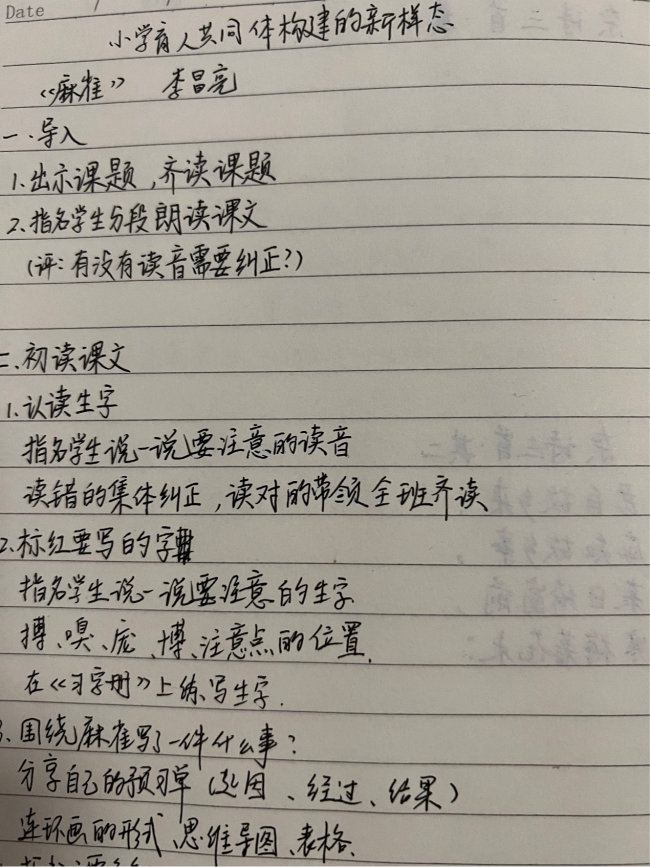 Date
小学育人共同体构建的新样态
《麻雀》 李昌亮
一、导入
1.出示课题,齐读课题
2.指名学生分段朗读课文
(评:有没有读音需要纠正?)
二、初读课文
1.认读生字
指名学生说一说要注意的读音
读错的集体纠正,读对的带领全班齐读
2.标红要写的字
指名学生说一说要注意的生字
搏、嗅、庞、博、注意点的位置.
在《习字册》上练写生字.
3.围绕麻雀写了一件什么事?
分享自己的预习单(起因、经过、结果)
连环画的形式、思维导图、表格.